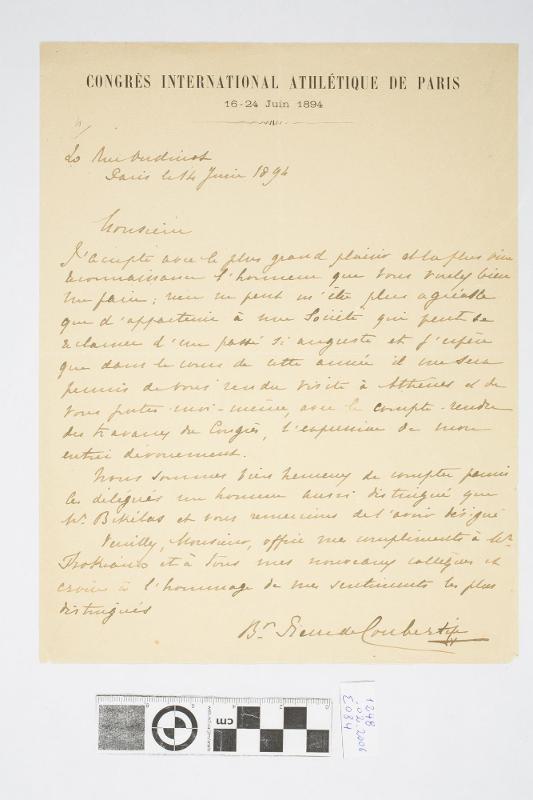 CONGRÈS INTERNATIONAL ATHLÉTIQUE DE PARIS
16-24 Juin 1894
20 Rue Oudinot
Paris le 14 Juin 1894
Monsieur
J'accepte avec le plus grand plaisir et la plus vive
reconnaissance l'honneur que vous voulez bien
me faire; rien ne peut m'être plus agréable
que d'appartenir à une Société qui peut se
réclamer d'un passé si auguste et j'espère
que dans le cours de cette année il me sera
permis de vous rendre visite à Athènes et de
vous porter moi-même, avec le compte-rendu
des travaux du Congrès, l'expression de mon
entier dévouement.
Nous sommes bien heureux de compter parmi
les délégués un homme aussi distingué que
Mr. Bikélas et vous remercions de l'avoir désigné
Veuillez, Monsieur, offrir mes compliments à Mr.
et à tous mes nouveaux collègues et
croire à l'hommage de mes sentiments les plus
distingués
Bn Pierre de Coubertin
cm
1248
.02.2006
E084